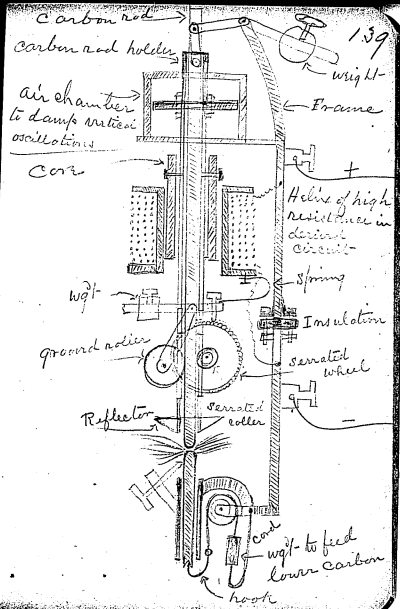 139
carbon rod
carbon rod holder
weight
air chamber
to damp vertical
oscillations
Frame
Core
+
Helix of high
resistance in
derived
circuit
Spring
wgt
Insulation
grooved roller
serrated
wheel
Reflector
serrated
roller
-
cord
wgt to feed
lower carbon
hook